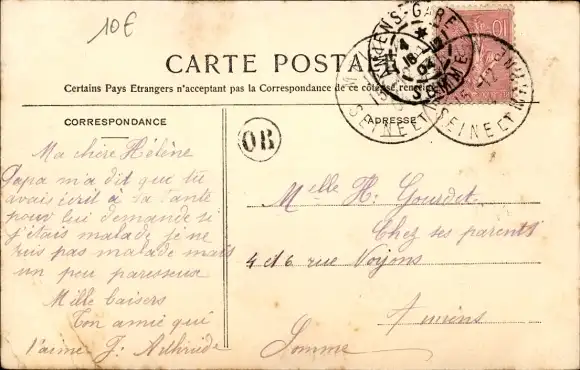 10€
CARTE POSTALE
Certains Pays Etrangers n'acceptant pas la Correspondance de ce côté se renseigner
CORRESPONDANCE
ADRESSE
AMIENS-GARE
SOMME
SEINE ET M
SEINE ET M
10
OR
Ma chère Hélène
Papa m'a dit que tu
avais écrit à sa Tante
pour lui demande si
j'étais malade je ne
suis pas malade mais
un peu paresseux
Mille baisers
Ton amie qui
t'aime J.
Melle H. Gourdet
Chez ses parents
4 et 6 rue Voyons
Amiens
Somme